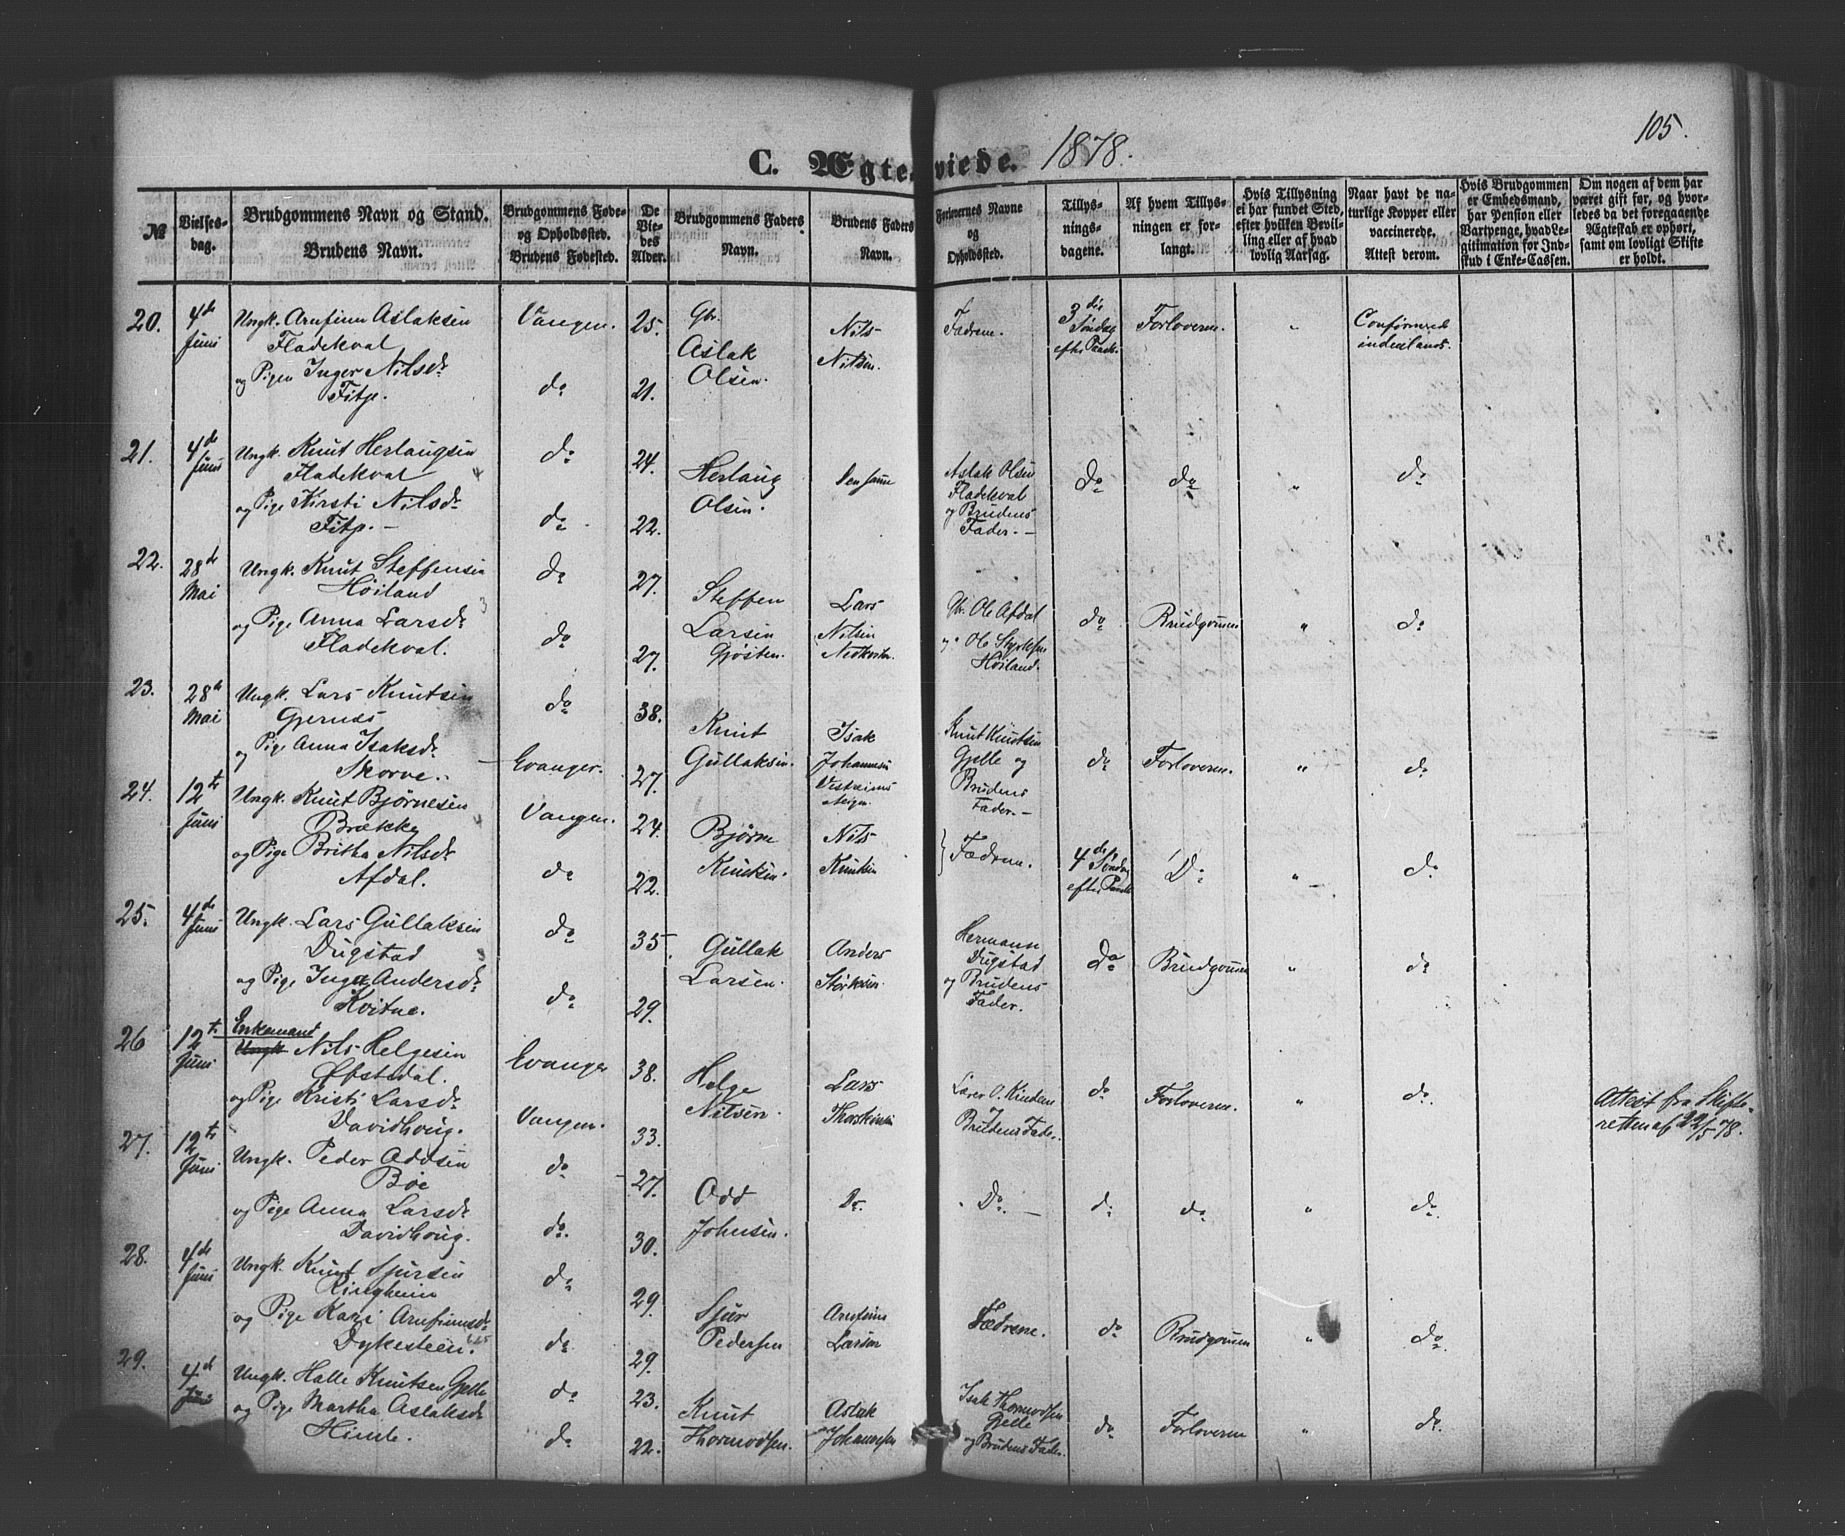 105.
C. Ægteviede. 1878.
№
Vielsesdag.
Brudgommens Navn og Stand.
Brudens Navn.
Brudgommens Føde-
og Opholdssted.
Brudens Fødested.
De
Viedes
Alder.
Brudgommens Faders
Navn.
Brudens Faders
Navn.
Forlovernes Navne
og
Opholdssted.
Tillys-
nings-
dagene.
Af hvem Tillys-
ningen er for-
langt.
Hvis Tillysning
ei har fundet Sted,
efter hvilken Bevil-
ling eller af hvad
lovlig Aarsag.
Naar havt de na-
turlige Kopper eller
vaccinerede.
Attest derom.
Hvis Brudgommen
er Embedsmand,
har Pension eller
Vartpenge, hvad Le-
gitimation for Ind-
skud i Enke-Cassen.
Om nogen af dem har
været gift før, og hvor-
ledes da det foregaaende
Ægteskab er ophørt,
samt om lovligt Skifte
er holdt.
20. 4de Juni
Ungk. Arnfinn Aslaksen
Fladekval
og Pigen Inger Nilsdr
Fitje.
Vangen. 25.
do 21.
Gbr.
Aslak
Olsen.
Nils
Nilsen.
Fædrene.
3die
Søndag
efter Paask.
Forloverne. "
Confirmered
indenlands.
21. 4de Juni
Ungk. Knut Herlaugsen
Fladekval
og Pige Kirsti Nilsdr
Fitje. –
do 24.
do 22.
Herlaug
Olsen.
Densamme
Aslak Olsen
Fladekval
og Brudens
Fader. –
do do " do
22. 28de Mai
Ungk. Knut Steffensen
Høiland
og Pige Anna Larsdr
Fladekval.
do 27.
do 27.
Steffen
Larsen
Gjøsten.
Lars
Nilsen
Nedkvitn.
Gbr. Ole Afdal
og Ole Styrksen
Høiland.
do Brudgommen " do
23. 28de Mai
Ungk. Lars Knutsen
Gjernes
og Pige Anna Isaksdr
Skorve.
do 38.
Evanger. 27.
Knut
Gullaksen.
Isak
Johannesen
Knut Knutsen
Gjelle og
Brudens
Fader. –
do Forloverne. " do
24. 12te Juni
Ungk. Knut Bjørnesen
Brække
og Pige Britha Nilsdr
Afdal.
Vangen. 24.
do 22.
Bjørne
Knutsen.
Nils
Knutsen
Fædrene.
4de Søndag
efter Paask
Do " do
25. 4de Juni
Ungk. Lars Gullaksen
Dugstad
og Pige Inga Andersdr
Kvitne.
do 35.
do 29.
Gullak
Larsen.
Anders
Störksen.
Hermann
Dugstad
og Brudens
Fader.
do Brudgommen " do
26 12te Juni
Enkemand
Ungk Nils Helgesen
Øfstedal.
og Pige Kristi Larsdr
Davidhoug.
Evanger 38.
Vangen. 33.
Helge
Nilsen.
Lars
O. Kindem
Brudens Fader.
do Forloverne. " do.
Attest fra Skifte-
retten af 22/5 78.
27. 12te Juni
Ungk. Peder Oddsen
Bøe
og Pige Anna Larsdr
Davidhoug.
do 27.
do. 30.
Odd
Johnsen.
Do.
Do. –
do do " do.
28. 4de Juni
Ungk. Knut Sjursen
Ringheim
og Pige Kari Arnfinnsdr
Dykesteen.
do 29.
do 29.
Sjur
Pedersen
Arnfinn
Larsen
Fædrene.
do Brudgommen " do.
29. 4de Juni
Ungk. Halle Knutsen Gjelle
og Pige Martha Aslaksdr
Hinde.
do 23.
do 22.
Knut
Thormodsen.
Aslak
Johannesen
Isak Thormodsen
Gjelle
og Brudens Fader.
do Forloverne " do.